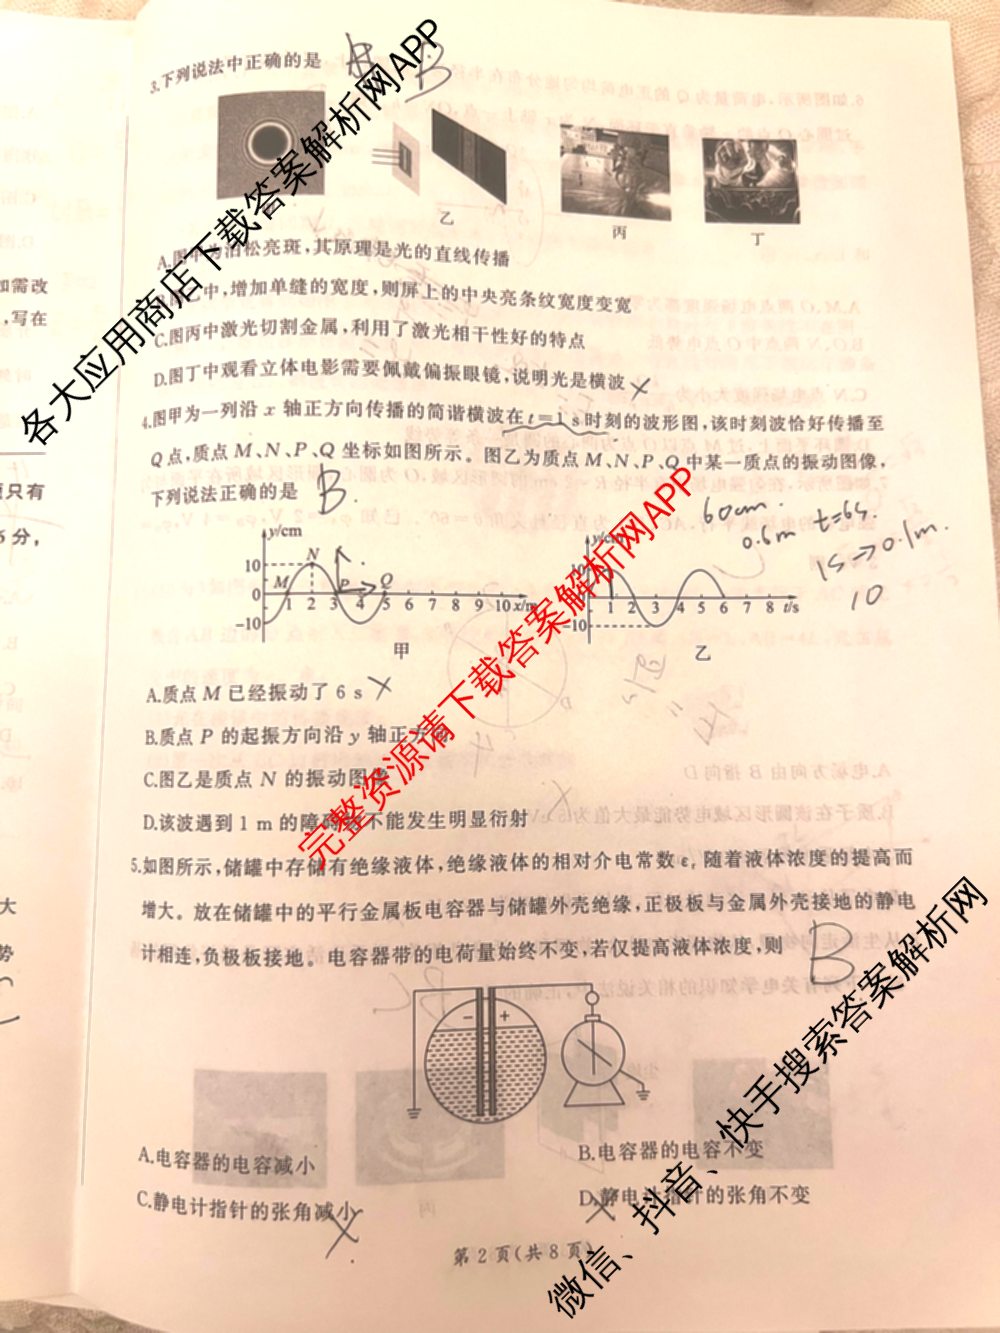 3.下列说法中正确的是 B
乙
丙
丁
A.图甲为泊松亮斑,其原理是光的直线传播
中,增加单缝的宽度,则屏上的中央亮条纹宽度变宽
C.图丙中激光切割金属,利用了激光相干性好的特点
D.图丁中观看立体电影需要佩戴偏振眼镜,说明光是横波
4.图甲为一列沿 x 轴正方向传播的简谐横波在 t=1 s 时刻的波形图,该时刻波恰好传播至
Q 点,质点 M、N、P、Q 坐标如图所示。图乙为质点 M、N、P、Q 中某一质点的振动图像,
下列说法正确的是 B
60cm
0.6m t=6s.
1s→0.1m.
10
y/cm
10
0
-10
M N P Q
1 2 3 4 5 6 7 8 9 10 x/m
甲
y/cm
10
0
-10
1 2 3 4 5 6 7 8 t/s
乙
A.质点 M 已经振动了 6 s
B.质点 P 的起振方向沿 y 轴正方向
C.图乙是质点 N 的振动图像
D.该波遇到 1 m 的障碍物不能发生明显衍射
5.如图所示,储罐中存储有绝缘液体,绝缘液体的相对介电常数 εr 随着液体浓度的提高而
增大。放在储罐中的平行金属板电容器与储罐外壳绝缘,正极板与金属外壳接地的静电
计相连,负极板接地。电容器带的电荷量始终不变,若仅提高液体浓度,则 B
- +
A.电容器的电容减小
B.电容器的电容不变
C.静电计指针的张角减小
D.静电计指针的张角不变
第 2 页(共 8 页)
如需改
,写在
只有
分,
大
势
各大应用商店下载答案解析网APP
完整资源请下载答案解析网APP
微信、抖音、快手搜索答案解析网